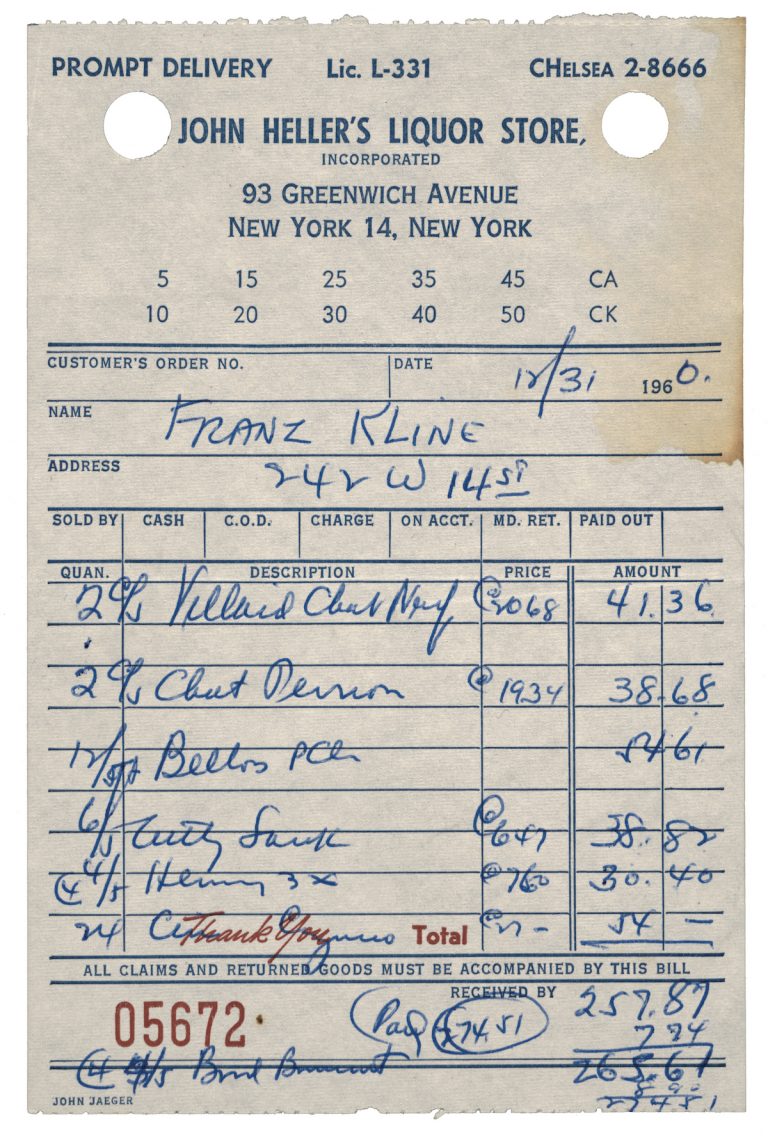 PROMPT DELIVERY Lic. L-331 CHELSEA 2-8666
JOHN HELLER'S LIQUOR STORE,
INCORPORATED
93 GREENWICH AVENUE
NEW YORK 14, NEW YORK
5 15 25 35 45 CA
10 20 30 40 50 CK
CUSTOMER'S ORDER NO. DATE 12/31 1960.
NAME FRANZ KLINE
ADDRESS 242 W 14 ST
SOLD BY CASH C.O.D. CHARGE ON ACCT. MD. RET. PAID OUT
QUAN. DESCRIPTION PRICE AMOUNT
2 c/s Chat Neuf @ 2068 41.36
2 c/s Chat @ 1934 38.68
12/ 54 61
6/5 Cutty Sark @ 647 38.82
4 4/5 3x @ 760 30.40
24 Thank You Total @ 27- 54 —
ALL CLAIMS AND RETURNED GOODS MUST BE ACCOMPANIED BY THIS BILL
RECEIVED BY 257.87
05672 Paid 274.51 7 74
4 4/5 265.61
8.90
JOHN JAEGER 274 51